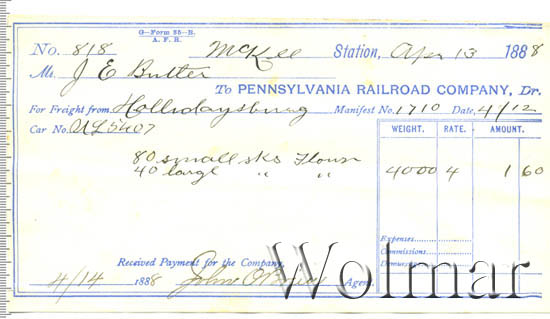 G—Form 35—B.
A. F. R.
No. 818 McKee Station, Apr 13 1888
Mr. J E Butler
To PENNSYLVANIA RAILROAD COMPANY, Dr.
For Freight from Hollidaysburg Manifest No. 1710 Date, 4/12
Car No. UL5407
WEIGHT. RATE. AMOUNT.
80 small sks Flour 4000 4 1 60
40 large " "
Expenses
Commissions
Demurrage
Received Payment for the Company,
4/14 1888 John Agent.
Wolmar